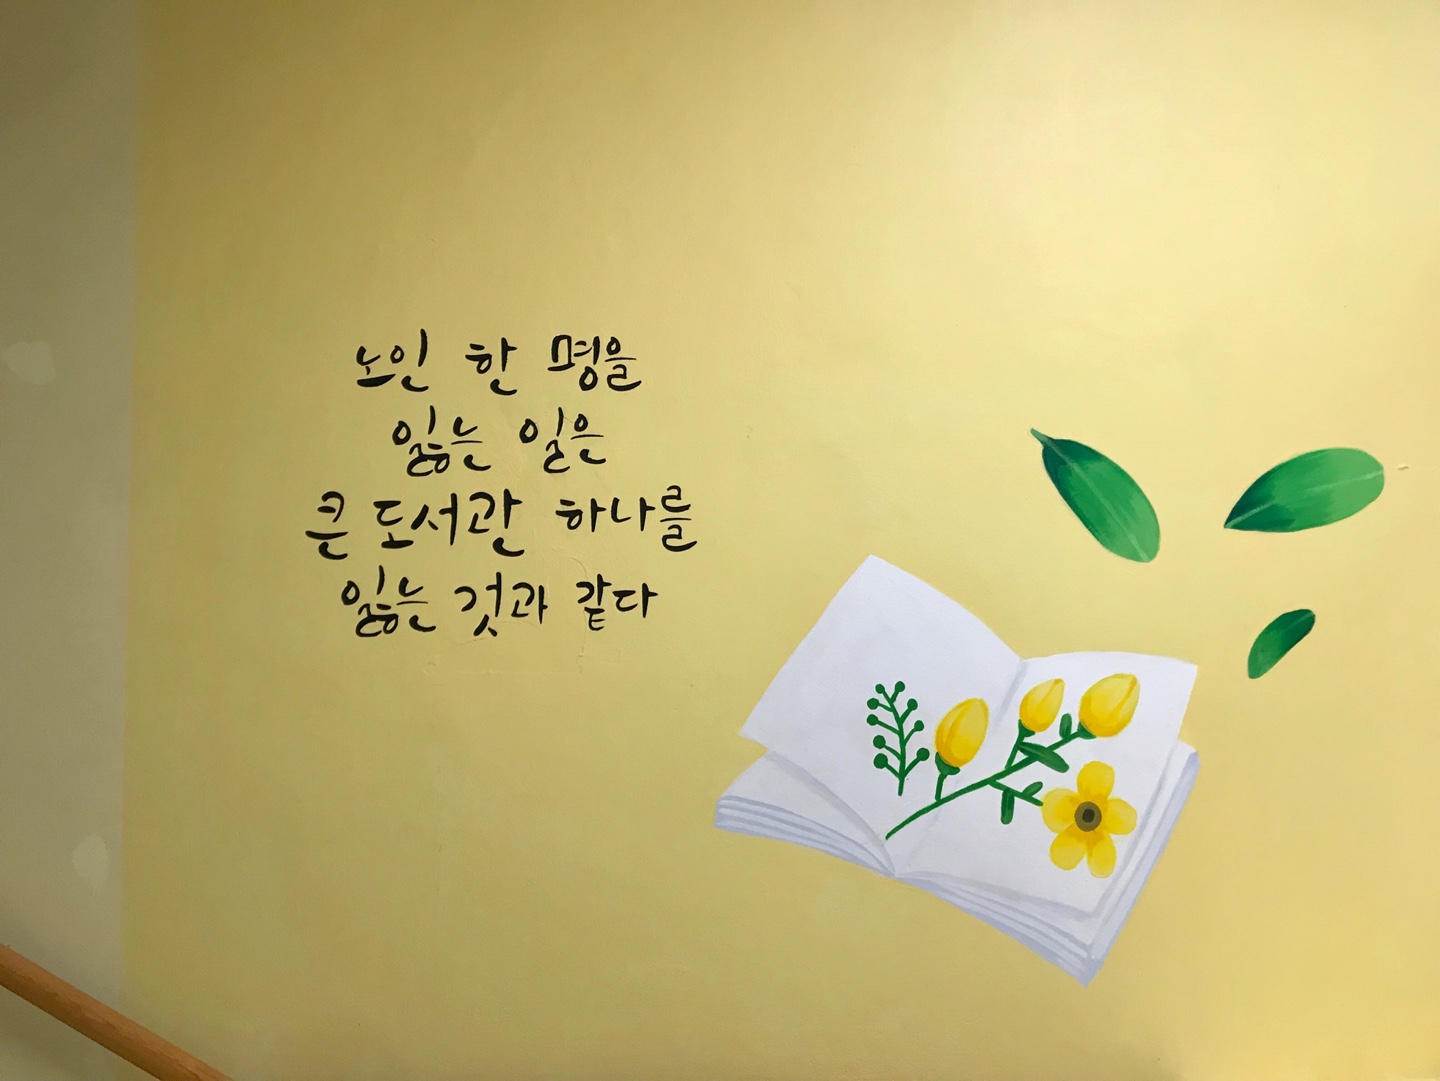 노인 한 명을
잃는 일은
큰 도서관 하나를
잃는 것과 같다